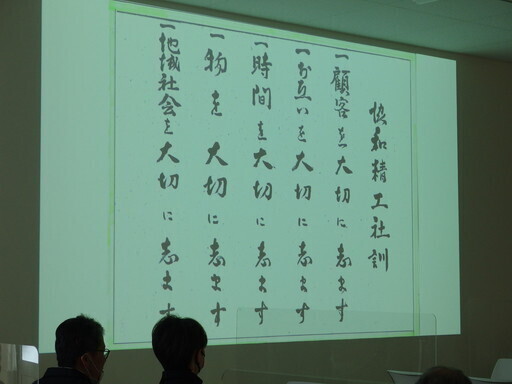 協和精工社訓
一顧客を大切に志ます
一お互いを大切に志ます
一時間を大切に志ます
一物を大切に志ます
一地域社会を大切に志ます